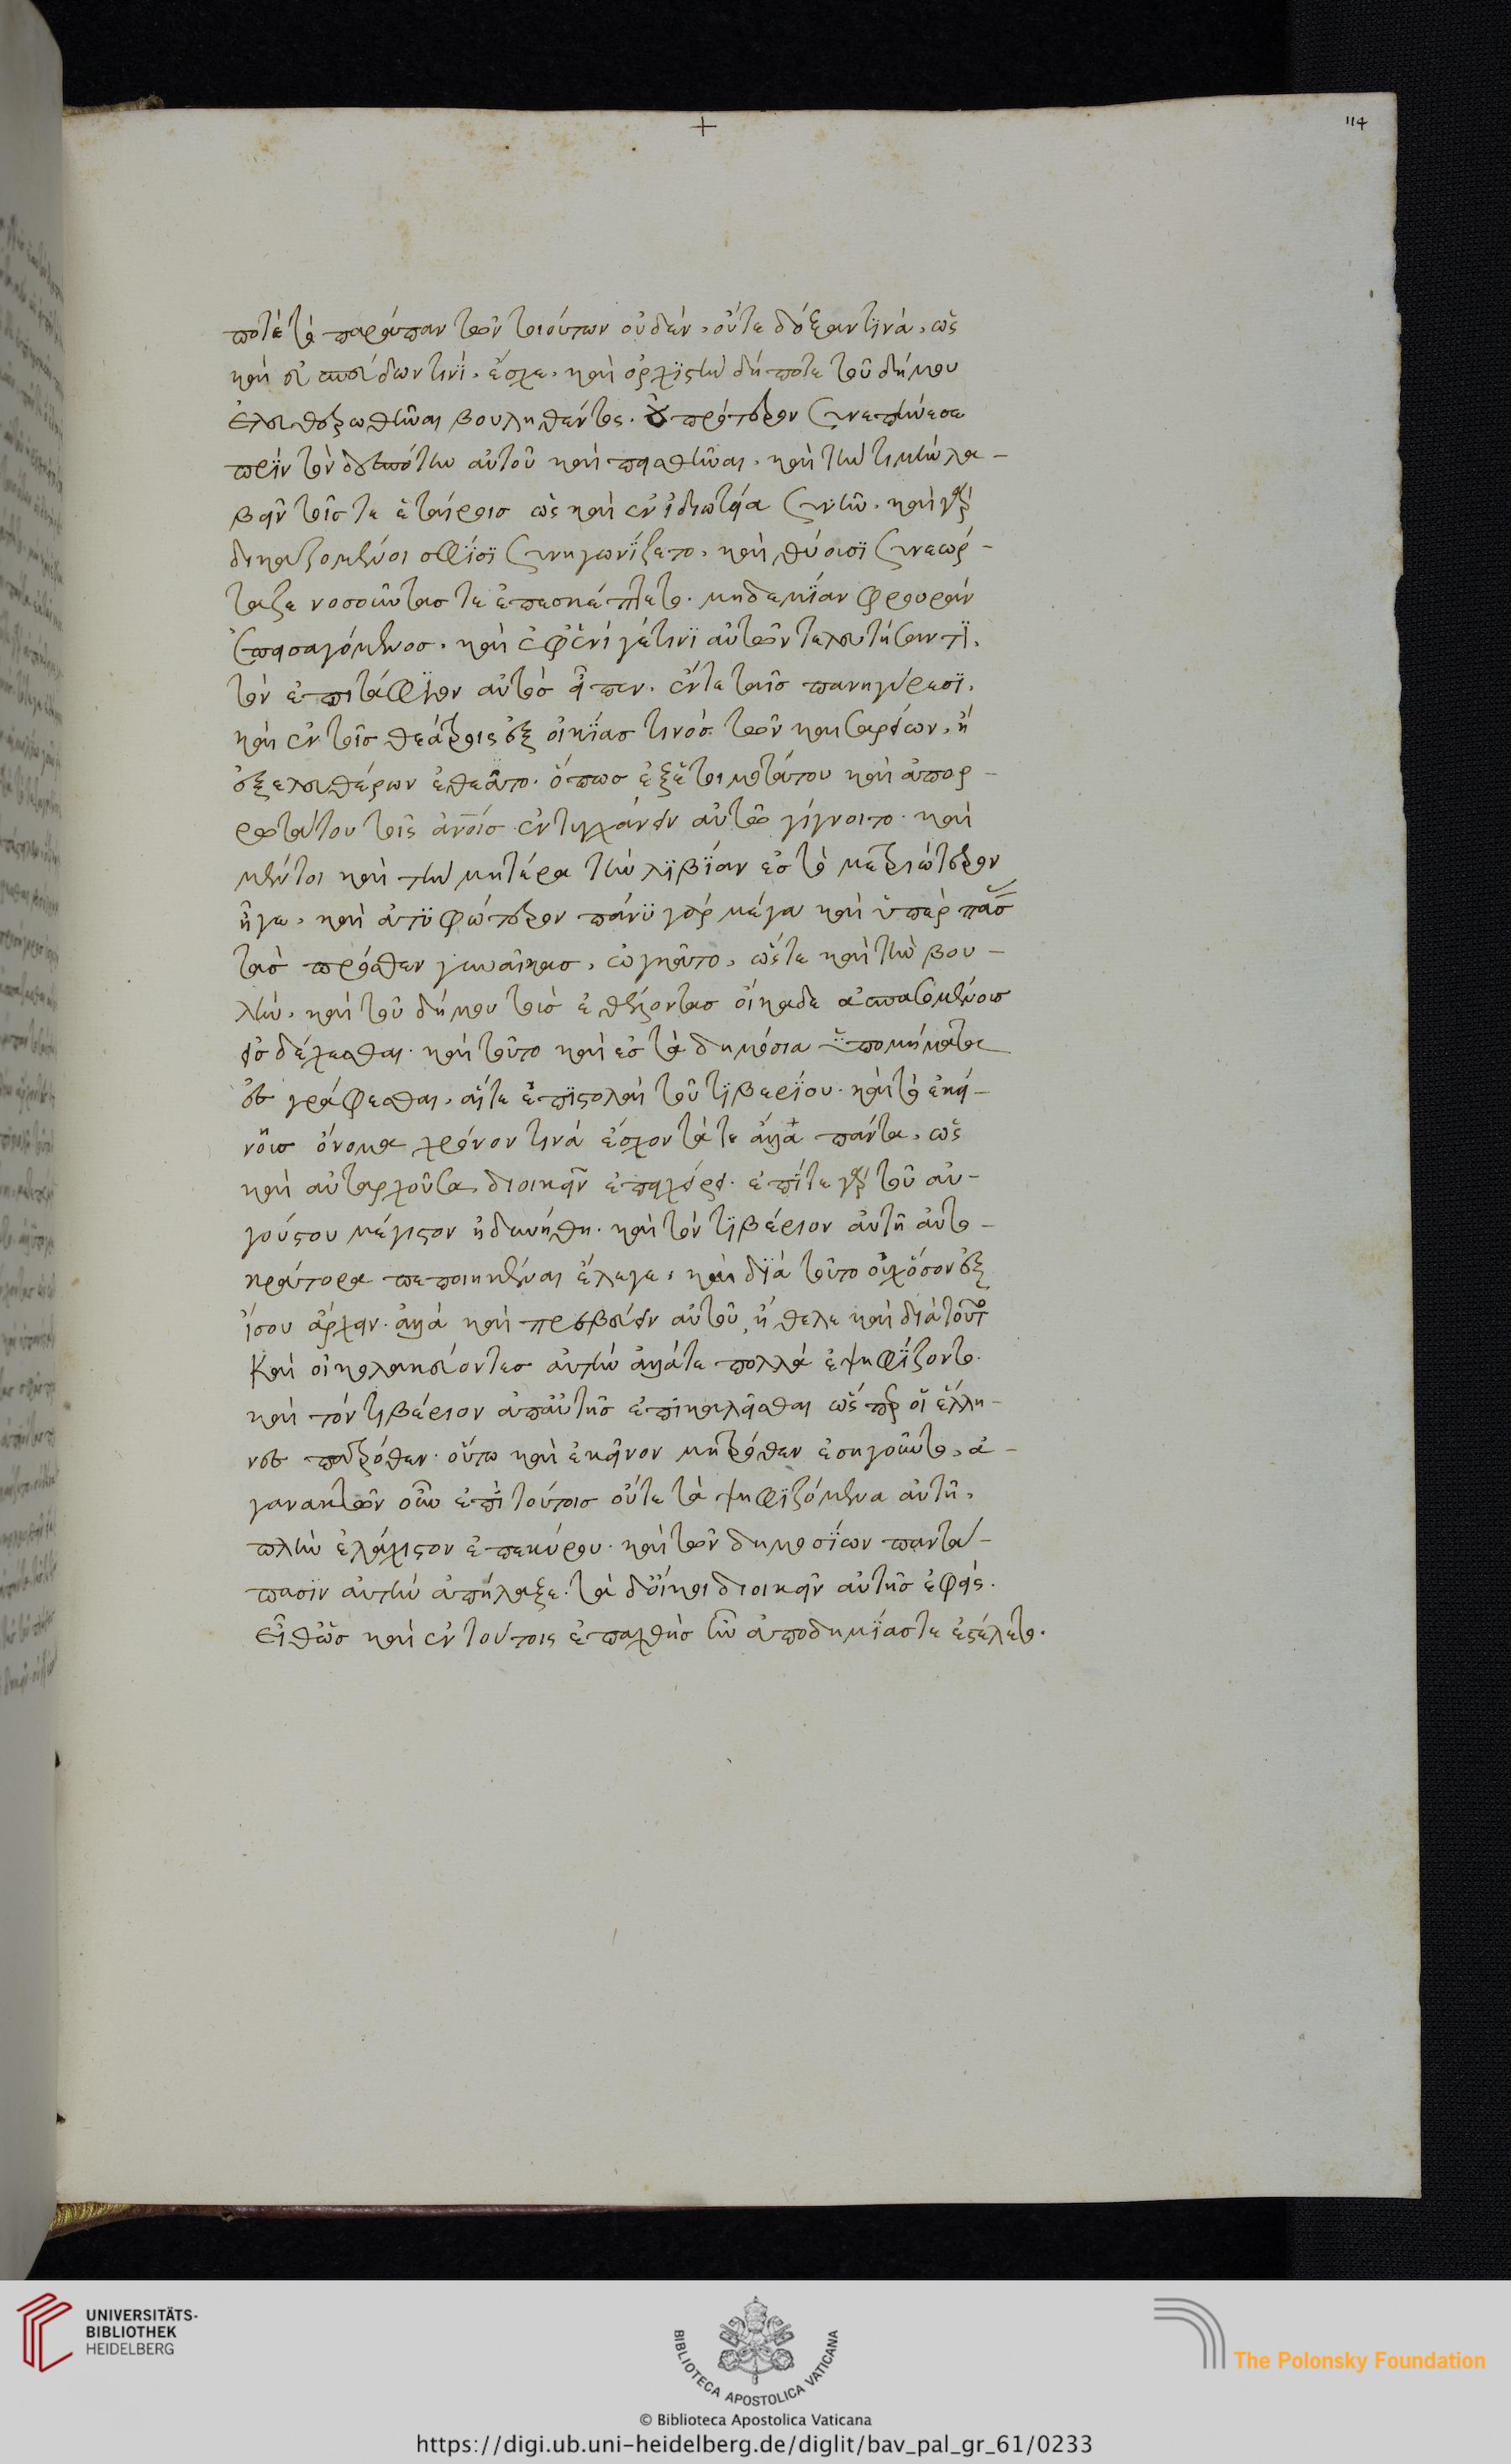 +
114
ποτὲ τὸ παράπαν τῶν τοιούτων οὐδέν, οὔτε δόξαν τινά, ὡς
καὶ σπεύδων τινί, ἔσχε, καὶ ὀρχηστὴν δήποτε τοῦ δήμου
ἐλευθερωθῆναι βουληθέντος, οὐ πρότερον συνεπήνεσε
πρὶν τὸν δεσπότην αὐτοῦ καὶ πεισθῆναι, καὶ τὴν τιμὴν λα-
βεῖν τοῖς τε ἑταίροις ὡς καὶ ἐν ἰδιωτεία συνῆν. καὶ γὰρ
δικαζομένοι σφίσι συνηγωνίζετο, καὶ θύουσι συνεώρ-
ταζε νοσοῦντας τε ἐπεσκέπτετο. μηδεμίαν φρουρὰν
ἐπεσαγόμενος. καὶ ἐφ' ἑνί γέ τινι αὐτῶν τελευτήσαντι,
τὸν ἐπιτάφιον αὐτὸς εἶπεν. ἔν τε ταῖς πανηγύρεσι,
καὶ ἐν τοῖς θεάτροις ἐξ οἰκίας τινὸς τῶν καισαρείων, ἢ
ἐξελευθέρων ἐθεᾶτο. ὅπως ἐξ ἑτοιμοτάτου καὶ ἀπορ-
ροτάτου τοῖς ἀνοις ἐντυγχάνειν αὐτῶ γίγνοιτο. καὶ
μέντοι καὶ τὴν μητέρα τὴν λιβίαν ἐς τὸ μετριώτερον
ἦγε, καὶ ἀτυφώτερον πάνυ γὰρ μέγα καὶ ὑπὲρ πασ
τὰς πρόσθεν γυναῖκας, ὤγκωτο, ὥστε καὶ τὴν βου-
λὴν, καὶ τοῦ δήμου τοὺς ἐθέλοντας οἴκαδε ἀσπασομένους
εἰσδέχεσθαι. καὶ τοῦτο καὶ ἐς τὰ δημόσια ὑπομνήματα
ἐσγράφεσθαι, αἵ τε ἐπιστολαὶ τοῦ τιβερίου. καὶ τὸ ἐκεί-
νης ὄνομα χρόνον τινὰ ἔσχον τά τε ἄλλα πάντα, ὡς
καὶ αὐταρχοῦσα, διοικεῖν ἐπεχείρει. ἐπί τε γὰρ τοῦ αὐ-
γούστου μέγιστον ἠδυνήθη. καὶ τὸν τιβέριον αὐτὴ αὐτο-
κράτορα πεποιηκέναι ἔλεγε, καὶ διὰ τοῦτο οὐχ ὅσον ἐξ
ἴσου ἄρχειν. ἀλλὰ καὶ πρεσβεύειν αὐτοῦ ἤθελε καὶ διὰ τοῦτο
καὶ οἱ κολακεύοντες αὐτὴν ἄλλά τε πολλὰ ἐψηφίζοντο.
καὶ τὸν τιβέριον ἀπ' αὐτῆς ἐπικαλεῖσθαι ὥσπερ οἱ ἕλλη-
νες πατρόθεν. οὕτω καὶ ἐκεῖνον μητρόθεν ἐσηγοῦντο, ἀ-
γανακτῶν οὖν ἐπὶ τούτοις οὔτε τὰ ψηφιζόμενα αὐτῆ,
πλὴν ἐλάχιστον ἐπεκύρου. καὶ τῶν δημοσίων παντά-
πασιν αὐτὴν ἀπήλαξε. τὰ δ' οἴκοι διοικεῖν αὐτῆς ἐφείς.
εἶθ' ὡς καὶ ἐν τούτοις ἐπαχθὴς ἦν ἀποδημίας τε ἐστέλετο.
UNIVERSITÄTS-
BIBLIOTHEK
HEIDELBERG
BIBLIOTECA APOSTOLICA VATICANA
The Polonsky Foundation
© Biblioteca Apostolica Vaticana
https://digi.ub.uni-heidelberg.de/diglit/bav_pal_gr_61/0233